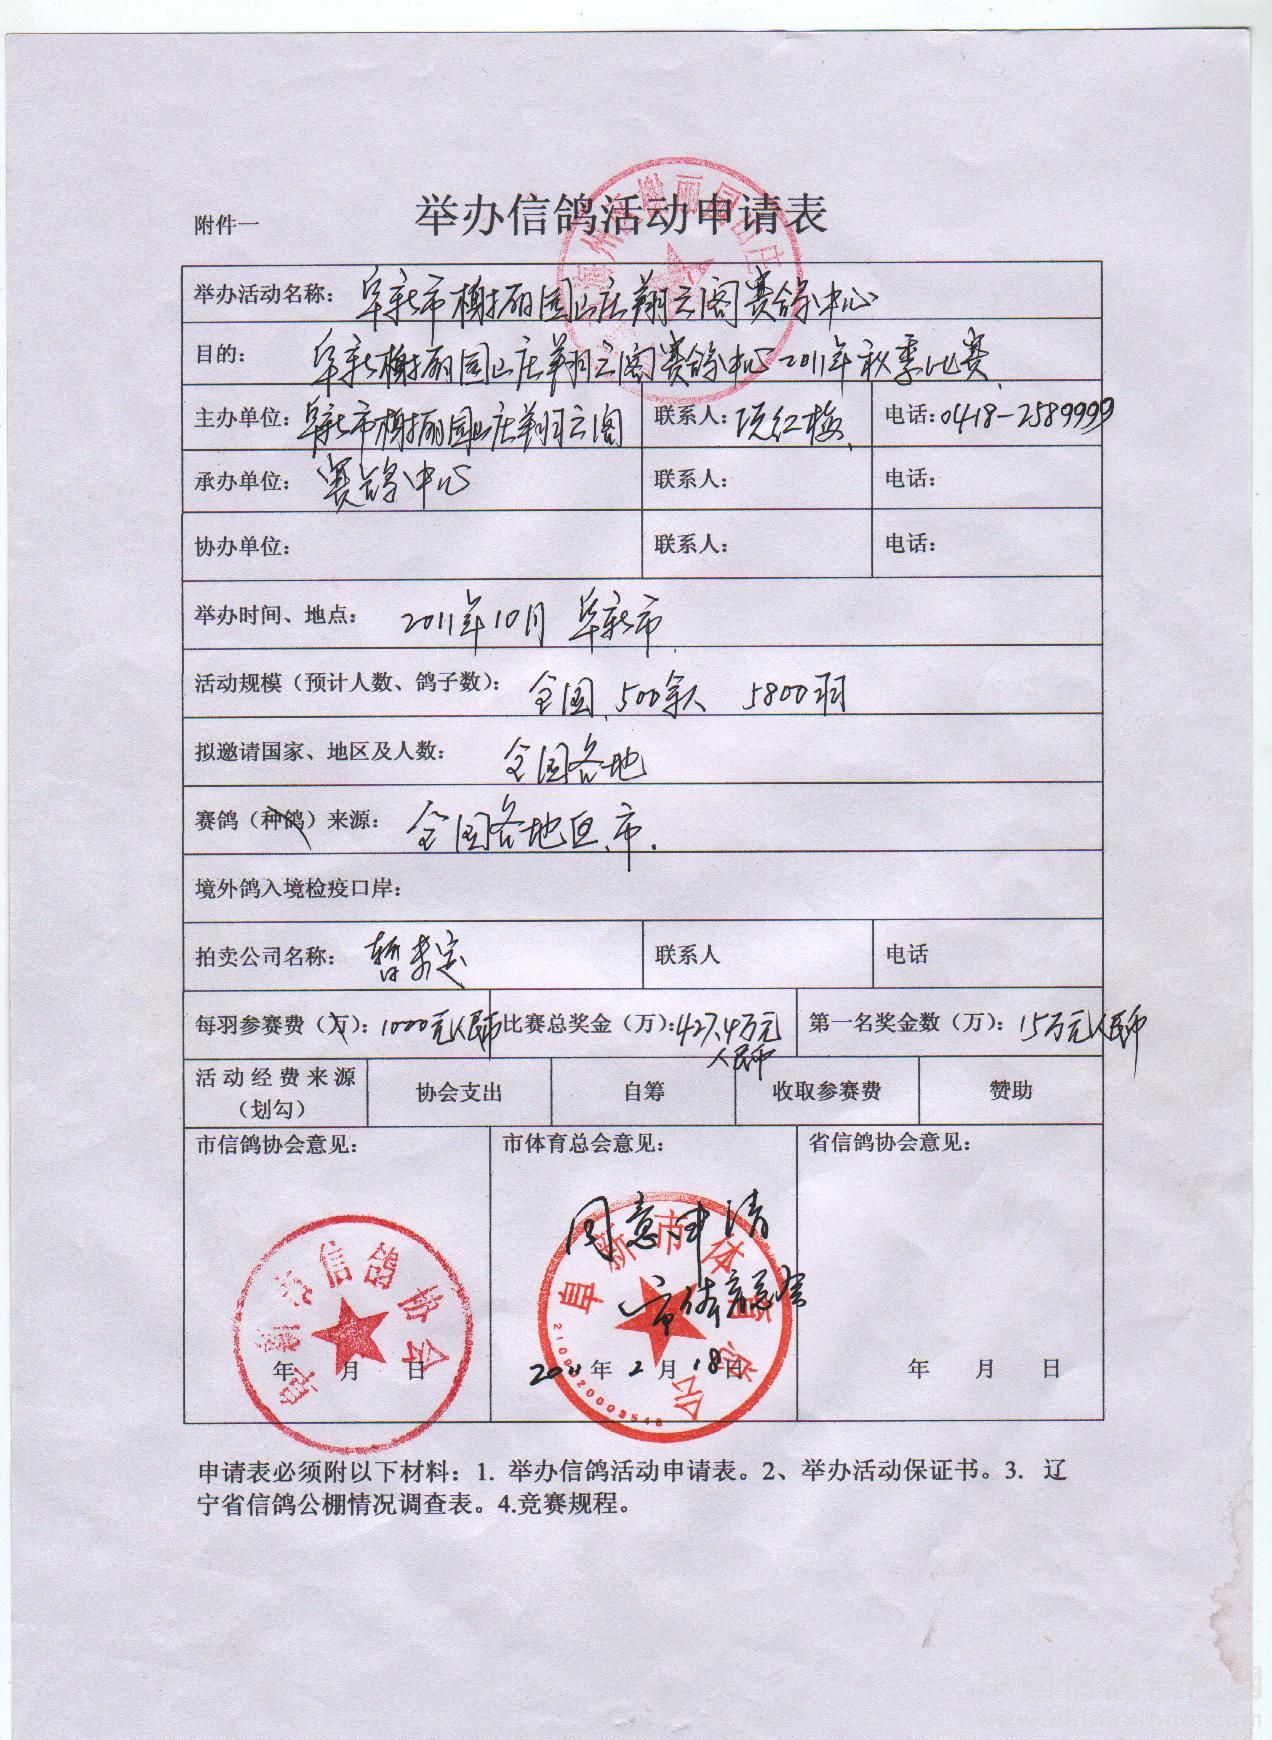 附件一
举办信鸽活动申请表
举办活动名称: 阜新市榭丽园山庄翔云阁赛鸽中心
目的: 阜新榭丽园山庄翔云阁赛鸽中心2011年秋季比赛
主办单位: 阜新市榭丽园山庄翔云阁 联系人: 红梅 电话:0418-2589999
承办单位: 赛鸽中心 联系人: 电话:
协办单位: 联系人: 电话:
举办时间、地点: 2011年10月 阜新市
活动规模（预计人数、鸽子数）: 全国 500余人 5800羽
拟邀请国家、地区及人数: 全国各地
赛鸽（种鸽）来源: 全国各地区、市.
境外鸽入境检疫口岸:
拍卖公司名称: 暂未定 联系人 电话
每羽参赛费（万）: 1000元人民币 比赛总奖金（万）:427.4万元人民币 第一名奖金数（万）: 15万元人民币
活动经费来源（划勾） 协会支出 自筹 收取参赛费 赞助
市信鸽协会意见: 市体育总会意见: 省信鸽协会意见:
同意申请
市体育总会
阜新市信鸽协会
阜新市体育总会
年 月 日 2011年2月18日 年 月 日
申请表必须附以下材料：1. 举办信鸽活动申请表。2、举办活动保证书。3. 辽
宁省信鸽公棚情况调查表。4.竞赛规程。